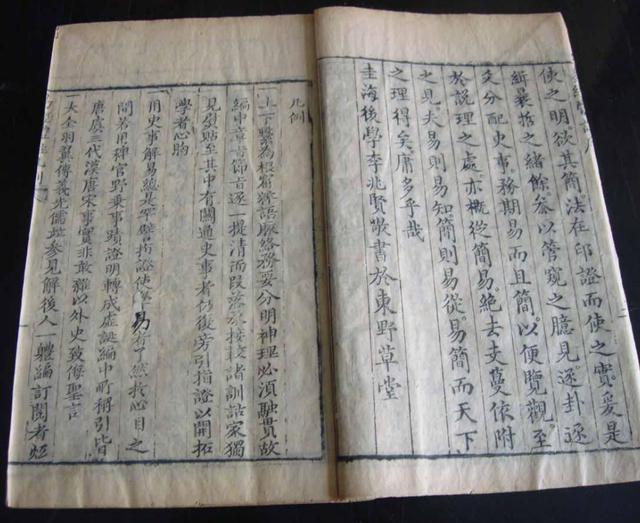 使之明欲其簡法在印證而使之實爰是
緝暴括之緒餘参以管窺之臆見逐卦逐
爻分配史事務期易而且簡以便覽觀至
於說理之處亦概從簡易絶去支蔓依附
之見夫易則易知簡則易從易簡而天下
之理得矣庸多乎哉
圭海後學李兆賢敬書於東野草堂
凡例
一上下繫為根窟辭語脈絡務要分明神理必須融貫故
編中章旨節旨逐一提清而段落承接較諸訓詁家獨
見慰貼至其中有關通史事者仍復旁引指證以開拓
學者心胸
一用史事解易總是罕譬指證使學易者了然於心目之
間若用稗官野乘事蹟證明轉成虛誕編中所稱引皆
唐虞三代漢唐宋事實非敢雜以外史致侮聖言
一大全羽翼傳義先儒
參見解後人一
編訂閱者